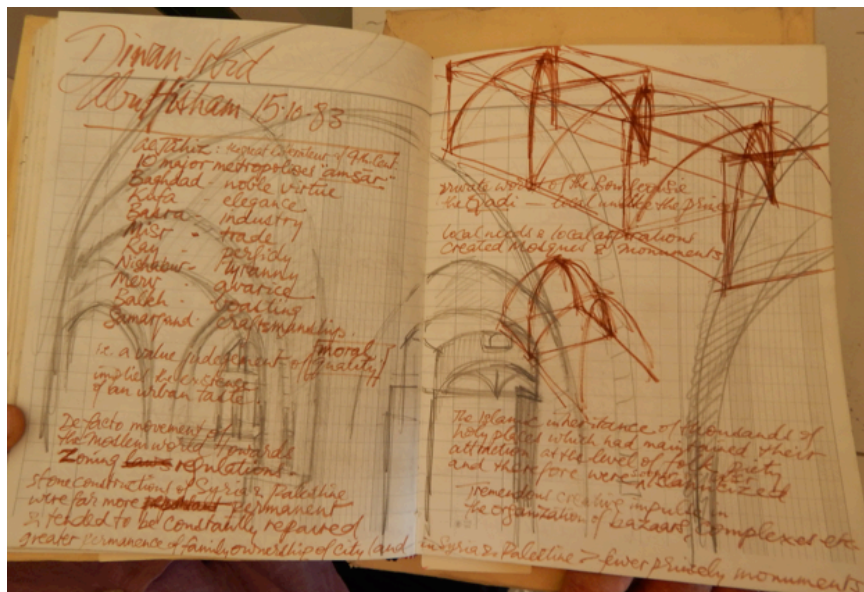 Diwan-Irbid
Abu Hisham 15·10·83
Al Jahiz: 9th cent
10 major metropolises "amsar"
Baghdad - noble virtue
Kufa elegance
Basra - industry
Misr - trade
Ray - perfidy
Nishabur - tyranny
Merv - avarice
Balkh - boasting
Samarqand - craftsmanship.
i.e. a value judgement of [moral
quality]
implies the existence
of an urban taste.
De facto movement of
the Moslem world towards
Zoning laws regulations
stone constructions of Syria & Palestine
were far more permanent
& tended to be constantly repaired
greater permanence of family ownership of city land in Syria & Palestine > fewer princely monuments
private world of the bourgeoisie
the Qadi — local unlike the prince
local needs & local aspirations
created Mosques & monuments
The Islamic inheritance of thousands of
holy places which had maintained their
attraction at the level of folk piety
and therefore were later
Tremendous creative impulse in
the organization of bazaars, complexes etc.